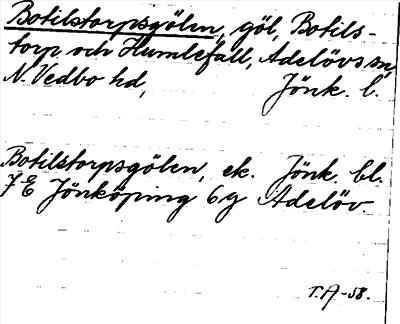 Botilstorpsgölen, göl, Botils-
torp och Humlefall, Adelövs sn,
N. Vedbo hd, Jönk. l.
Botilstorpsgölen, ek. Jönk. bl.
7E Jönköping 6g Adelöv
T.A-58.